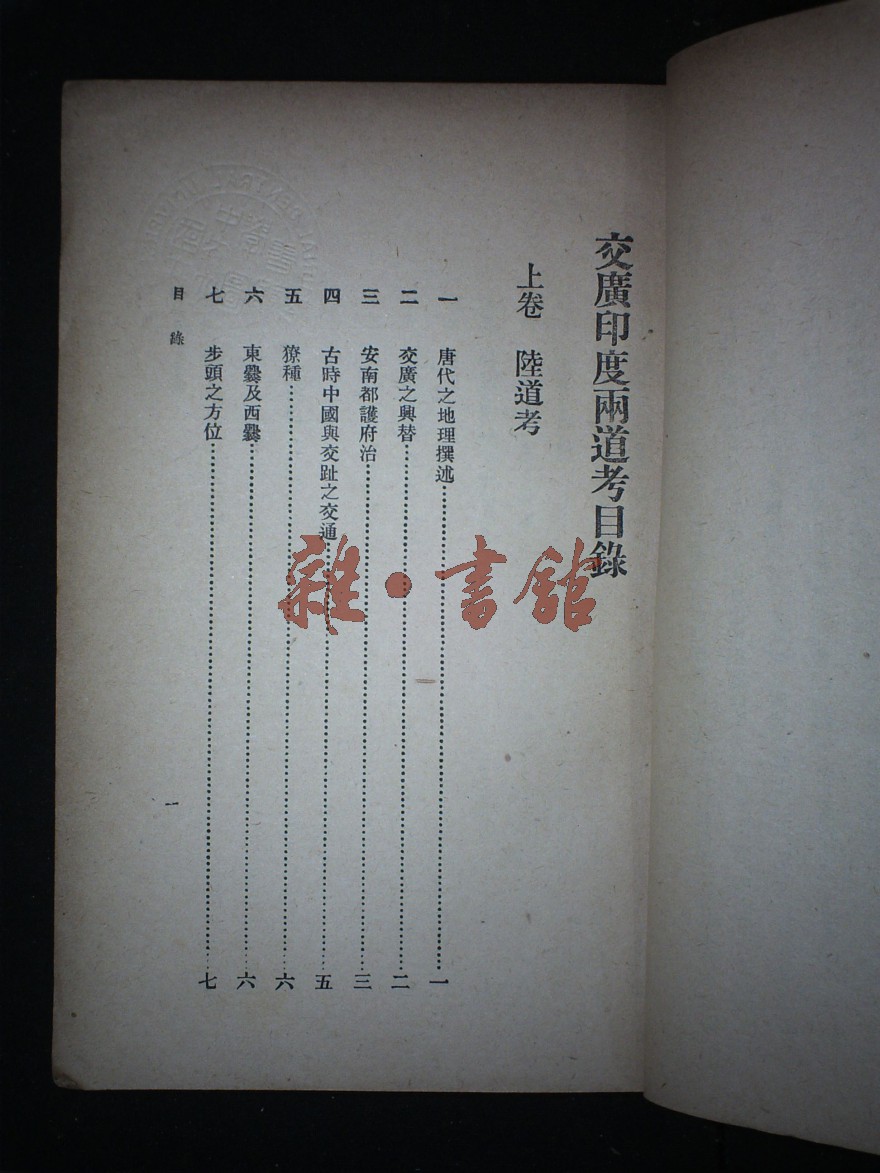 交廣印度兩道考目錄
上卷 陸道考
一 唐代之地理撰述 一
二 交廣之興替 二
三 安南都護府治 三
四 古時中國與交趾之交通 五
五 獠種 六
六 東爨及西爨 六
七 步頭之方位 七
目錄 一
雜·書館